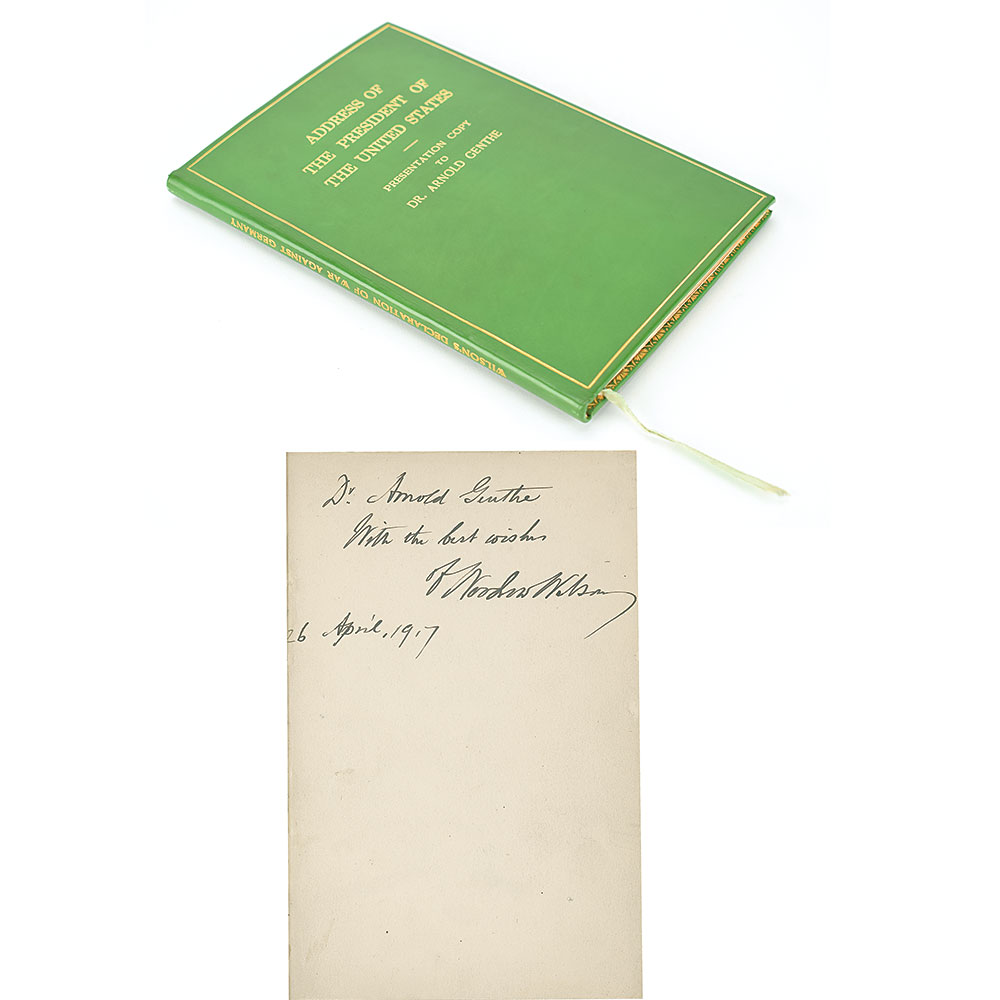 ADDRESS OF
THE PRESIDENT OF
THE UNITED STATES
PRESENTATION COPY
TO
DR. ARNOLD GENTHE
WILSON'S DECLARATION OF WAR AGAINST GERMANY
Dr. Arnold Genthe
With the best wishes
of Woodrow Wilson
26 April, 1917